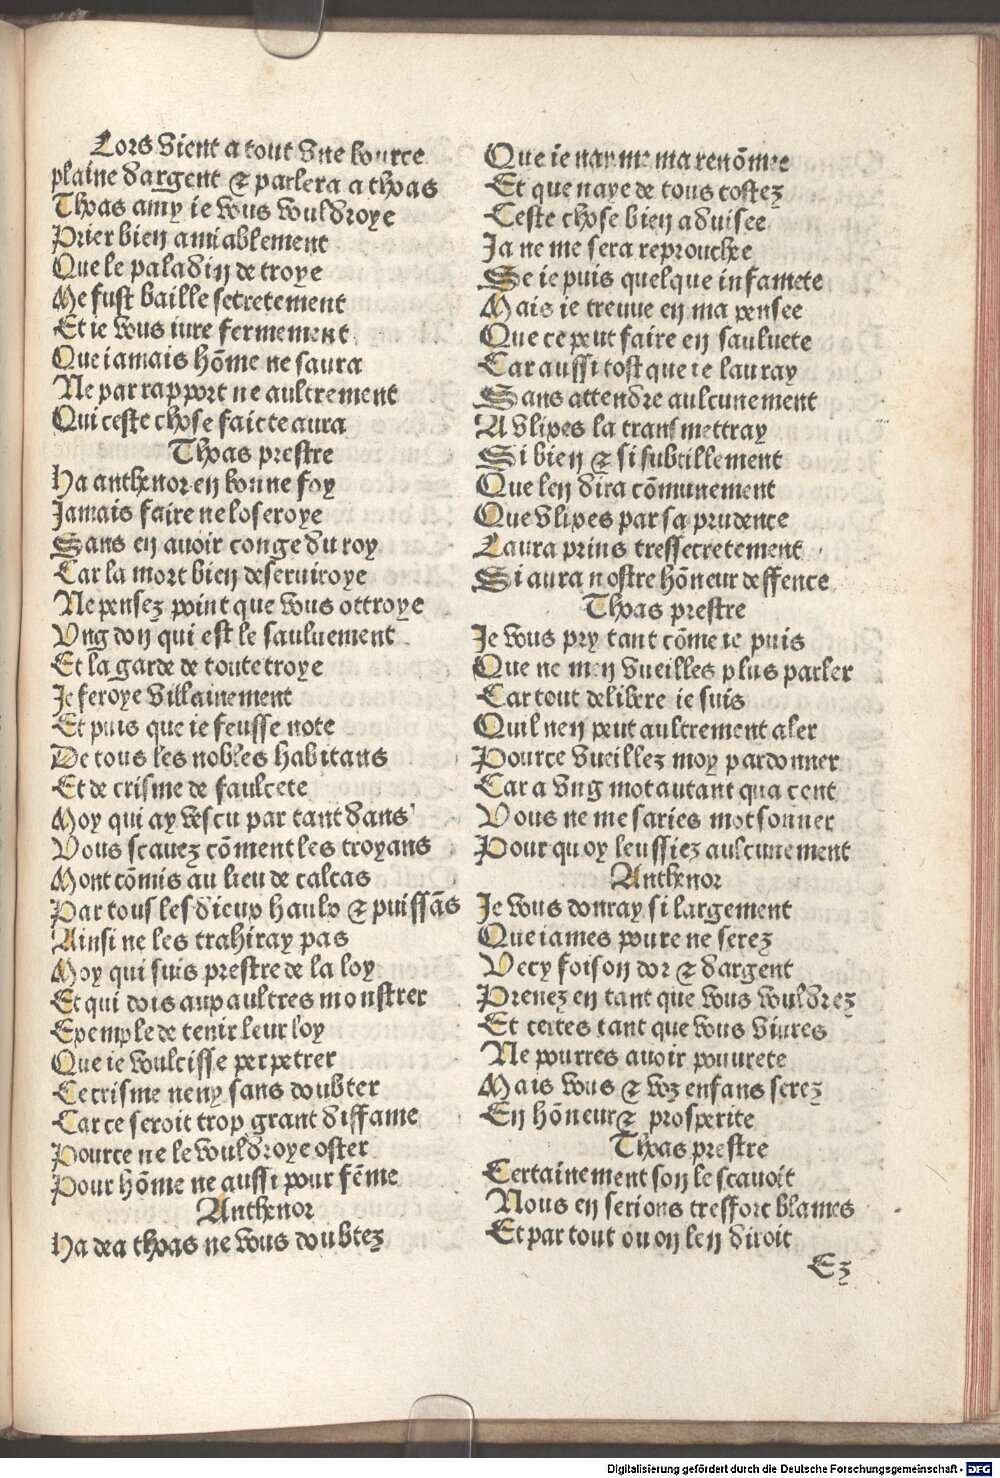 Lors vient a tout vne bource
plaine dargent & parlera a thoas
Thoas amy ie vous vouldroye
Prier bien amiablement
Que le paladin de troye
Me fust baille secretement
Et ie vous iure fermement
Que iamais hõme ne saura
Ne par rapport ne aultrement
Qui ceste chose faicte aura
Thoas prestre
Ha anthenor en bonne foy
Jamais faire ne loseroye
Sans en auoir conge du roy
Car la mort bien deseruiroye
Ne pensez point que vous ottroye
Vng don qui est le sauluement
Et la garde de toute troye
Je feroye villainement
Et puis que ie feusse note
De tous les nobles habitans
Et de crisme de faulcete
Moy qui ay vescu par tant dans
Vous scauez cõment les troyans
Mont cõmis au lieu de calcas
Par tous les dieux haulx & puissãs
Ainsi ne les trahiray pas
Moy qui suis prestre de la loy
Et qui dois aux aultres monstrer
Exemple de tenir leur loy
Que ie voulcisse perpetrer
Ce crisme neny sans doubter
Car ce seroit trop grant diffame
Pource ne le vouldroye oster
Pour hõme ne aussi pour fẽme
Anthenor
Ha dea thoas ne vous doubtez
Que ie nayme ma renõmee
Et que naye de tous costez
Ceste chose bien aduisee
Ja ne me sera reprouchee
Se ie puis quelque infamete
Mais ie treuue en ma pensee
Que ce peut faire en sauluete
Car aussi tost que ie lauray
Sans attendre aulcunement
A vlixes la transmettray
Si bien & si subtillement
Que len dira cõmunement
Que vlixes par sa prudence
Laura prins tressecretement
Si aura nostre hõneur deffence
Thoas prestre
Je vous pry tant cõme ie puis
Que ne men vueilles plus parler
Car tout delibere ie suis
Quil nen peut aultrement aler
Pource vueillez moy pardonner
Car a vng mot autant qua cent
Vous ne me saries mot sonner
Pour quoy leussiez aulcunement
Anthenor
Je vous donray si largement
Que iames poure ne serez
Vecy foison dor & dargent
Prenez en tant que vous vouldrez
Et certes tant que vous viures
Ne pourres auoir pouurete
Mais vous & voz enfans serez
En hõneur & prosperite
Thoas prestre
Certainement son le scauoit
Nous en serions tresfort blames
Et par tout ou on len diroit
Ez
Digitalisierung gefördert durch die Deutsche Forschungsgemeinschaft - DFG